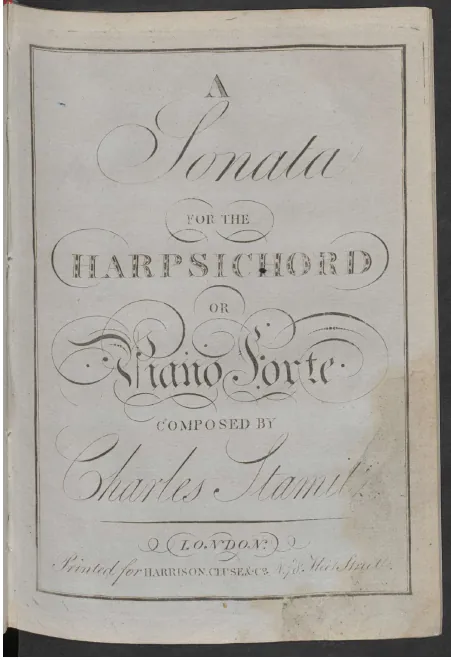 A
Sonata
FOR THE
HARPSICHORD
OR
Piano Forte
COMPOSED BY
Charles Stamitz
LONDON:
Printed for HARRISON, CLUSE, & Co. No. 78, Fleet Street.